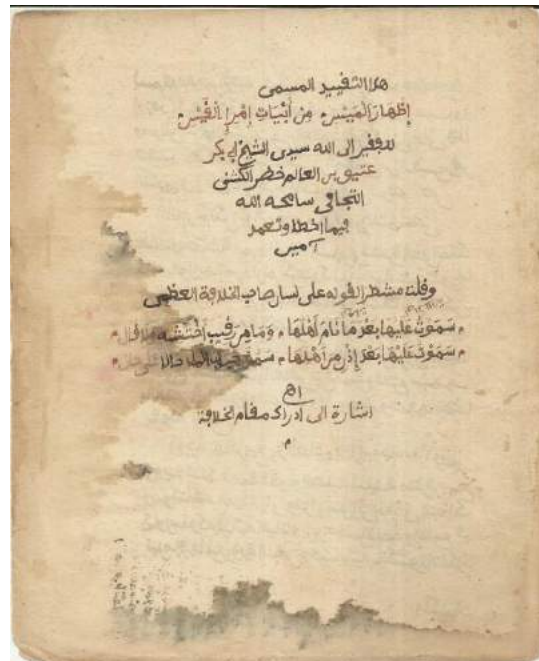 هذا التقييد المسمى
إظهار الميس من أبيات امرئ القيس
للفقير إلى الله سيدي الشيخ أبي بكر
عتيق بن العالم خضر الكشني
التجاني سامحه الله
فيما أخطأ وتعمد
آمين
وقلت مشطرا لقوله على لسان صاحب الخلافة العظمى
سَمَوْتُ عليها بعد ما نام أهلها وما من رقيب أختشيه
سَمَوْتُ عليها بعد إذن من أهلها سمو
اهـ
اشارة الى ادراك مقام الخلافة